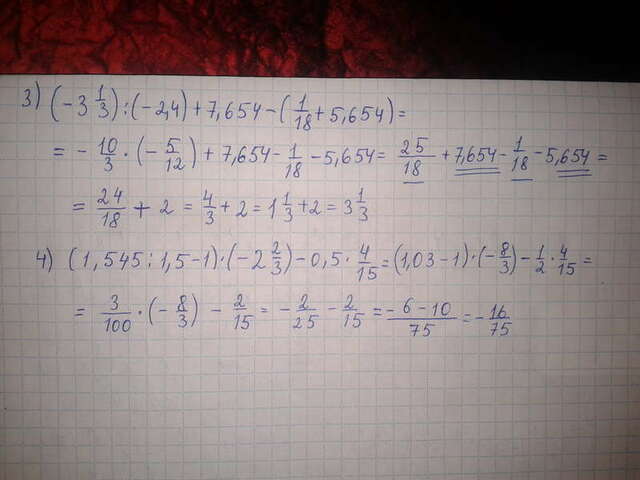 3) (-3 1/3) : (-2,4) + 7,654 - (1/18 + 5,654) =
= - 10/3 · (- 5/12) + 7,654 - 1/18 - 5,654 = 25/18 + 7,654 - 1/18 - 5,654 =
= 24/18 + 2 = 4/3 + 2 = 1 1/3 + 2 = 3 1/3
4) (1,545 : 1,5 - 1) · (-2 2/3) - 0,5 · 4/15 = (1,03 - 1) · (- 8/3) - 1/2 · 4/15 =
= 3/100 · (- 8/3) - 2/15 = - 2/25 - 2/15 = -6-10/75 = - 16/75